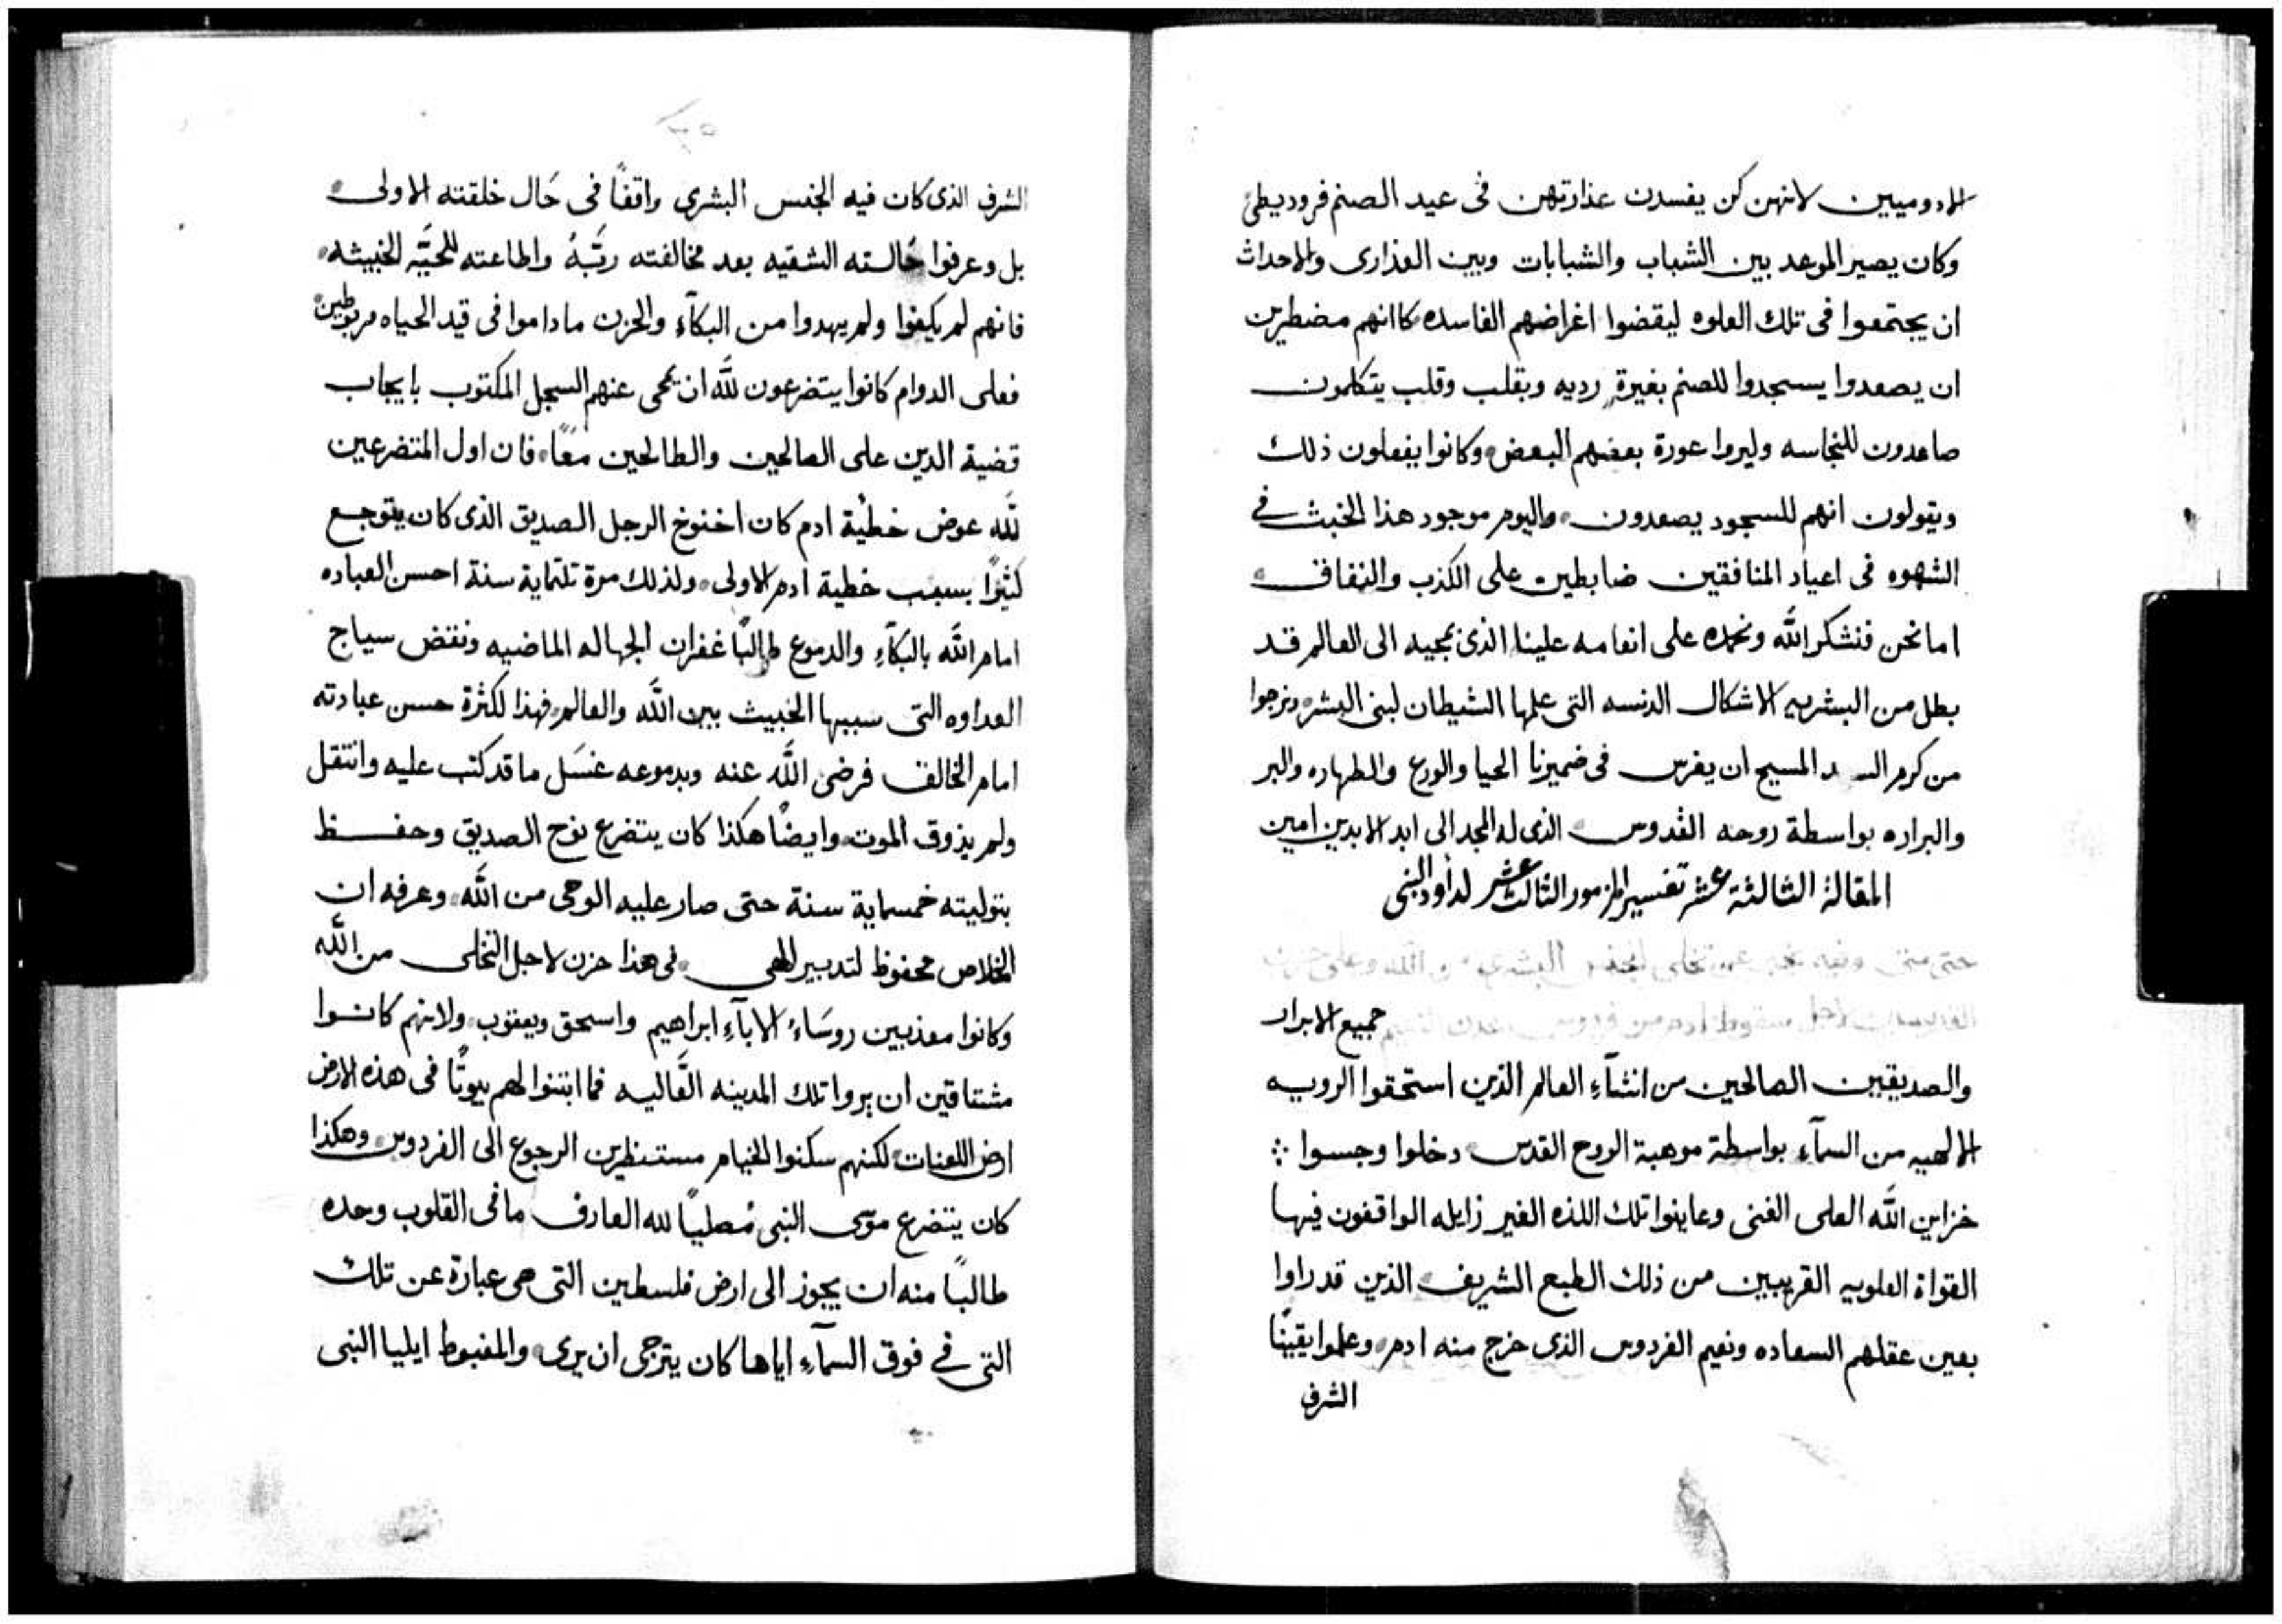 الادوميين لانهن كن يفسدن عذارتهن فى عيد الصنم فروديطى
وكان يصير الموعد بين الشباب والشبابات وبين العذارى والاحداث
ان يجتمعوا فى تلك العلوه ليقضوا اغراضهم الفاسده كاانهم مضطرين
ان يصعدوا يسجدوا للصنم بغيرة رديه وبقلب وقلب يتكلمون
صاعدون للنجاسه وليروا عورة بعضهم البعض وكانوا يفعلون ذلك
ويقولون انهم للسجود يصعدون واليوم موجود هذا الخبث في
الشهوه فى اعياد المنافقين ضابطين على الكذب والنفاق
اما نحن فنشكر الله ونحمده على انعامه علينا الذى بمجيه الى العالم قد
بطل من البشريه الاشكال الدنسه التى علمها الشيطان لبنى البشر ونرجوا
من كرم السيد المسيح ان يغرس فى ضميرنا الحيا والورع والطهاره والبر
والبراره بواسطة روحه القدوس الذى له المجد الى ابد الابدين امين
المقالة الثالثة عشر تفسير المزمور الثالث عشر لداود النبى
حتى متى وفيه يخبر عن تخلى الجنس البشرى من الله وعلى حزن
القديسين لاجل سقوط ادم من فردوس النعيم جميع الابرار
والصديقين الصالحين من انشآء العالم الذين استحقوا الرويه
الالهيه من السمآء بواسطة موهبة الروح القدس دخلوا وجسوا
خزاين الله العلى الغنى وعاينوا تلك اللذه الغير زايله الواقفون فيها
القواة العلويه القريبين من ذلك الطبع الشريف الذين قد راوا
بعين عقلهم السعاده ونعيم الفردوس الذى خرج منه ادم وعلموا يقينًا
الشرف
الشرف الذى كان فيه الجنس البشرى واقفًا فى حَال خلقته الاولى
بل وعرفوا حَالته الشقيه بعد مخالفته ربَّهُ واطاعته للحيَّه الخبيثه
فانهم لم يكيفوا ولم يهدوا من البكآء والحزن ماداموا فى قيد الحياه مربوطين
فعلى الدوام كانوا يتضرعون للَّه ان يمحى عنهم السجل المكتوب بايجاب
قضية الدين على الصالحين والطالحين معًا فان اول المتضرعين
للَّه عوض خطيْة ادم كان اخنوخ الرجل الصديق الذى كان يتوجع
كثيرًا بسبب خطية ادم الاولى ولذلك مرة تلتماية سنة احسن العباده
امام اللَّه بالبكآء والدموع طالبًا غفران الجهاله الماضيه ونقض سياج
العداوه التى سببها الخبيث بين اللَّه والعالم فهذا لكثرة حسن عبادته
امام الخالق فرضى اللَّه عنه وبدموعه غسَل ما قد كتب عليه وانتقل
ولم يذوق الموت وايضًا هكذا كان يتضرع نوح الصديق وحفظ
بتوليته خمسماية سنة حتى صار عليه الوحى من اللَّه وعرفه ان
الخلاص محفوظ لتدبير الهى فى هذا حزن لاجل التخلى من اللَّه
وكانوا معذبين روسَاء الابآء ابراهيم واسحق ويعقوب ولانهم كانوا
مشتاقين ان يروا تلك المدينه العَاليه فما ابتنوا لهم بيوتًا فى هذه الارض
ارض اللعنات لكنهم سكنوا الخيام مستنظرين الرجوع الى الفردوس وهكذا
كان يتضرع موسى النبى مُصليًا لله العارف ما فى القلوب وحده
طالبًا منه ان يجوز الى ارض فلسطين التى هى عبارة عن تلك
التى في فوق السمآء اياها كان يترجى ان يرى والمغبوط ايليا النبى